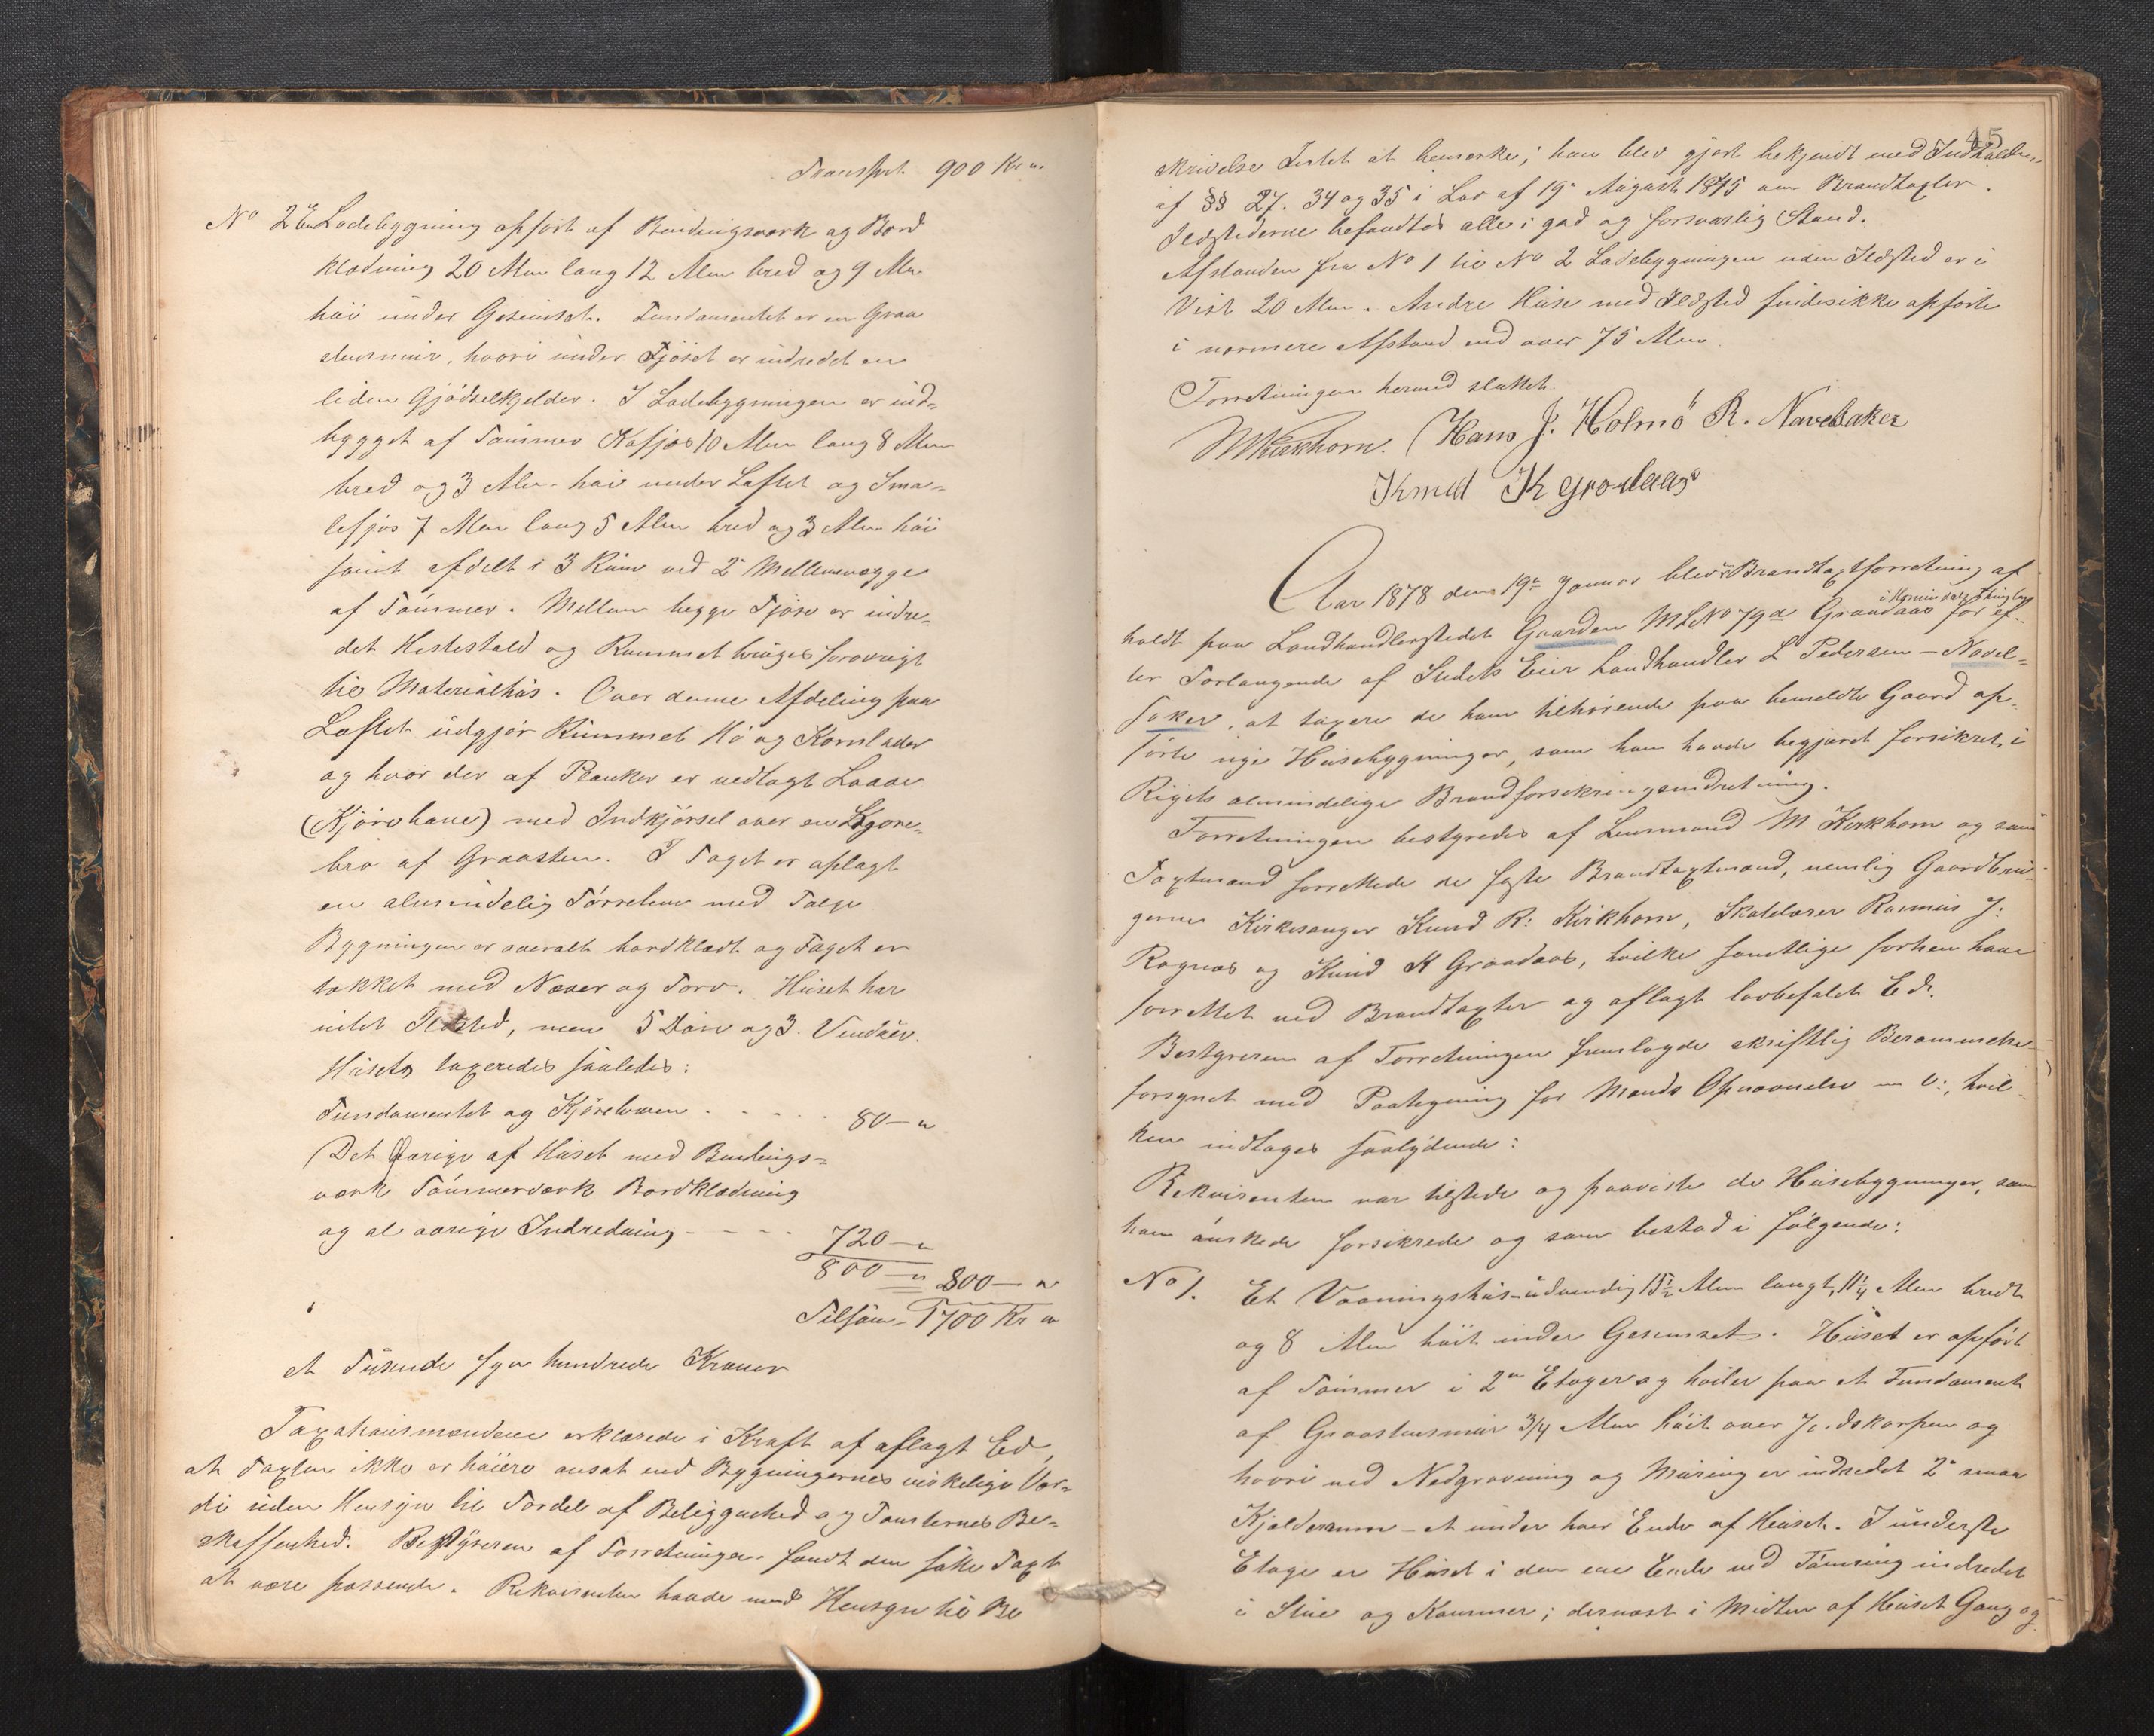 Transport. 900 Kr "
No 2 En Ladebygning opført af Bindingsværk og Bord
klædning 20 Alen lang 12 Alen bred og 9 Alen
høi under Gesimset. Fundamentet er en Graa
stensmuur, hvori under Fjøset er indredet en
liden Gjødselkjelder. I Ladebygningen er ind=
bygget af Tømmer Kofjøs 10 Alen lang 8 Alen
bred og 3 Alen høi under Loftet og Sma=
lefjøs 7 Alen lang 5 Alen bred og 3 Alen høi
samt afdelt i 3 Rum ved 2 Mellemvægge
af Tømmer. Mellem begge Fjøse er indre=
det Hestestald og Rummet bruges forøvrigt
til Materialhus. Over denne Afdeling paa
Loftet udgjør Rummet Hø og Kornlader
og hvor der af Planker er nedlagt Laave
(Kjørebane) med Indkjørsel over en Kjøre=
bro af Graasten. I Taget er oplagt
en almindelig Tørrehem med
Bygningen er overalt bordklædt og Taget er
tækket med Næver og Torv. Huset har
intet Ildsted, men 5 Døre og 3 Vinduer.
Husets taxeredes saaledes:
Fundamentet og Kjørebroen . . . . . 80 — "
Det Øvrige af Huset med Bindings=
værk Tømmerværk Bordklædning
og al øvrige Indredning - - - - 720 — "
800 — " 800 — "
Tilsam. 1700 Kr "
et Tusende syv hundrede Kroner
Taxationsmændene erklærede i Kraft af aflagt Ed,
at Taxten ikke er høiere ansat end Bygningernes virkelige Vær=
di uden Hensyn til Fordel af Beliggenhed og Tomternes Be=
skaffenhed. Bestyreren af Forretningen fandt den satte Taxt
at være passende. Rekvirenten havde med Hensyn til Be
45
skrivelse Intet at bemærke; han blev gjort bekjendt med Indholden
af §§ 27. 34 og 35 i Lov af 19de August 1845 om Brandtaxter.
Ildstederne befandtes alle i god og forsvarlig Stand.
Afstanden fra No 1 til No 2 Ladebygningen uden Ildsted er i
Vest 20 Alen. Andre Huse med Ildsted findes ikke opførte
i nærmere Afstand end over 75 Alen.
Forretningen hermed sluttet.
M Kirkhorn. Hans J. Holmö R. Navelsaker
Knud K Grodaas
Aar 1878 den 19de Januar blev Brandtaxtforretning af
i Hornindals Thinglag
holdt paa Landhandlerstedet Gaarden M L No 79a Graadaas for ef=
ter Forlangende af Stedets Eier Landhandler L Pedersen — Navel=
saker, at taxere de ham tilhørende paa bemeldte Gaard op=
førte nye Husebygninger, som han havde begjært forsikret i
Rigets almindelige Brandforsikringsindretning.
Forretningen bestyredes af Lensmand M Kirkhorn og som
Taxtmænd forrettede de faste Brandtaxtmænd, nemlig Gaardbru=
gerne Kirkesanger Knud R: Kirkhorn, Skolelærer Rasmus J:
Ragnæs og Knud K Graadaas, hvilke samtlige forhen have
forrettet ved Brandtaxter og aflagt lovbefalet Ed.
Bestyreren af Forretningen fremlagde skriftlig Berammelse
forsynet med Paategning for Mænds Opnævnelse m v:, hvil
ken indtages saalydende:
Rekvirenten var tilstede og paaviste de Husebygninger, som
han ønskede forsikrede og som bestod i følgende:
No 1. Et Vaaningshus udvendig 15½ Alen langt, 11¼ Alen bredt
og 8 Alen høit under Gesimset. Huset er opført
af Tømmer i 2de Etager og hviler paa et Fundament
af Graastensmur 3/4 Alen høit over Jordskorpen og
hvori ved Nedgravning og Muring er indredet 2de smaa
Kjælderrum — et under hver Ende af Huset. I underste
Etage er Huset i den ene Ende ved Tømring indredet
i Stue og Kammer; dernæst i Midten af Huset Gang og